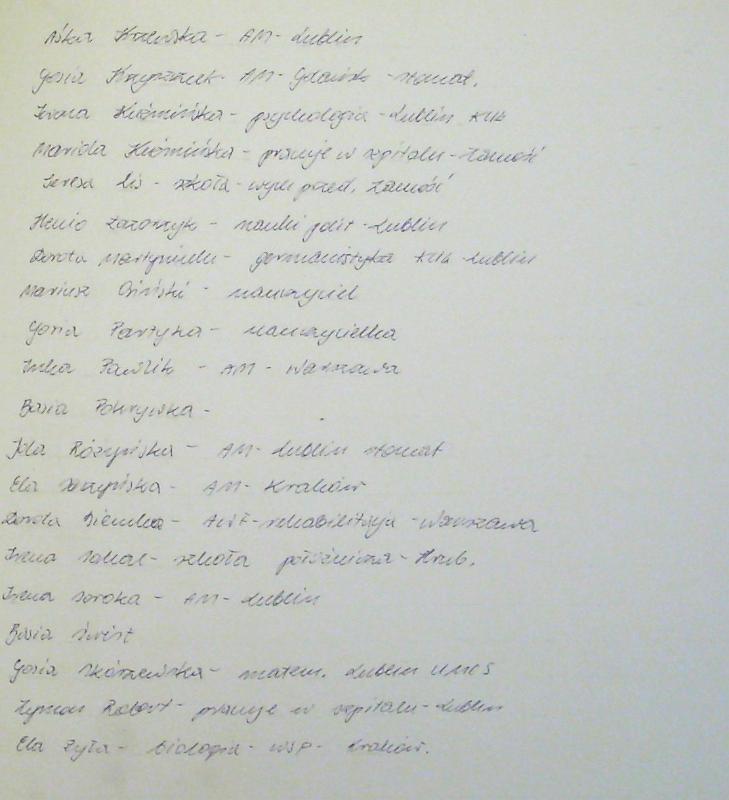 Aśka Krzewska - AM - Lublin
Gosia Krzyszczuk - AM - Gdańsk - stomat.
Iwona Kuźmińska - psychologia - Lublin KUL
Mariola Kuźmińska - pracuje w szpitalu - Zamość
Teresa Lis - szkoła - wych. przed. Zamość
Henio - nauki polit - Lublin
Dorota Martyniuk - germanistyka KUL Lublin
Mariusz Osiński - nauczyciel
Gosia Partyka - nauczycielka
Inka Pawlik - AM - Warszawa
Basia Pokrywka -
Jola Różyńska - AM - Lublin stomat
Ela - AM - Kraków
Dorota - AWF - rehabilitacja - Warszawa
Irena Sokal - szkoła położnicza - Hrub.
Irena Soroka - AM - Lublin
Basia Świst
Gosia Skórzewska - matem. Lublin UMCS
Szymon Robert - pracuje w szpitalu - Lublin
Ela Żyła - biologia - WSP - Kraków.